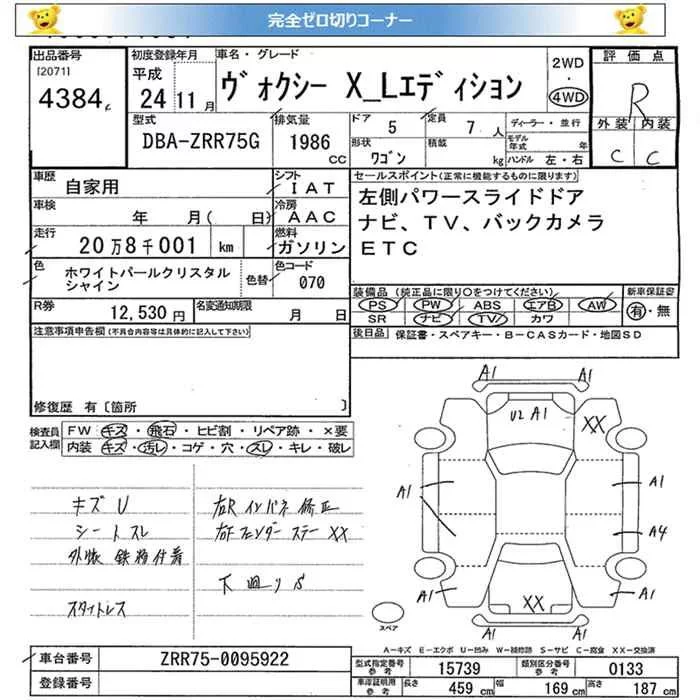 完全ゼロ切りコーナー
出品番号
[2071]
4384
初度登録年月
平成
24 11月
車名・グレード
ヴォクシー X_Lエディション
2WD
・
4WD
評価点
R
外装 内装
C C
型式
DBA-ZRR75G
排気量
1986
CC
ドア
5
定員
7 人
形状
ワゴン
積載
kg
ディーラー・並行
モデル年式 年
ハンドル 左・右
車歴 自家用
シフト
IAT
車検 年 月( 日)
冷房
AAC
走行 20万8千001 km
燃料
ガソリン
色 ホワイトパールクリスタルシャイン
色替
色コード
070
R券 12,530円
名変通知期限 月 日
セールスポイント(正常に機能するものに限ります)
左側パワースライドドア
ナビ、TV、バックカメラ
ETC
装備品 (純正品に限り○をつけてください)
PS PW ABS エアB AW
SR ナビ TV カワ
新車保証書
有・無
後日品 保証書・スペアキー・B-CASカード・地図SD
注意事項申告欄(不具合内容等は具体的に記入して下さい)
修復歴 有〔箇所 〕
検査員記入欄
FW キズ・飛石・ヒビ割・リペア跡・×要
内装 キズ・汚レ・コゲ・穴・スレ・キレ・破レ
キズU
シートスレ
外板 鉄粉付着
スタットレス
右Rインパネ修正
右Fフェンダーステー XX
下廻りS
A1
A1
U2 A1
XX
A1
A1
A1
A4
A1
A1
XX
スペア
A-キズ E-エクボ U-凹み W-補修跡 S-サビ C-腐食 XX-交換済
車台番号 ZRR75-0095922
登録番号
型式指定番号
参考
15739
類別区分番号
参考
0133
車庫証明用
参考
長さ 459 cm
幅 169 cm
高さ 187 cm